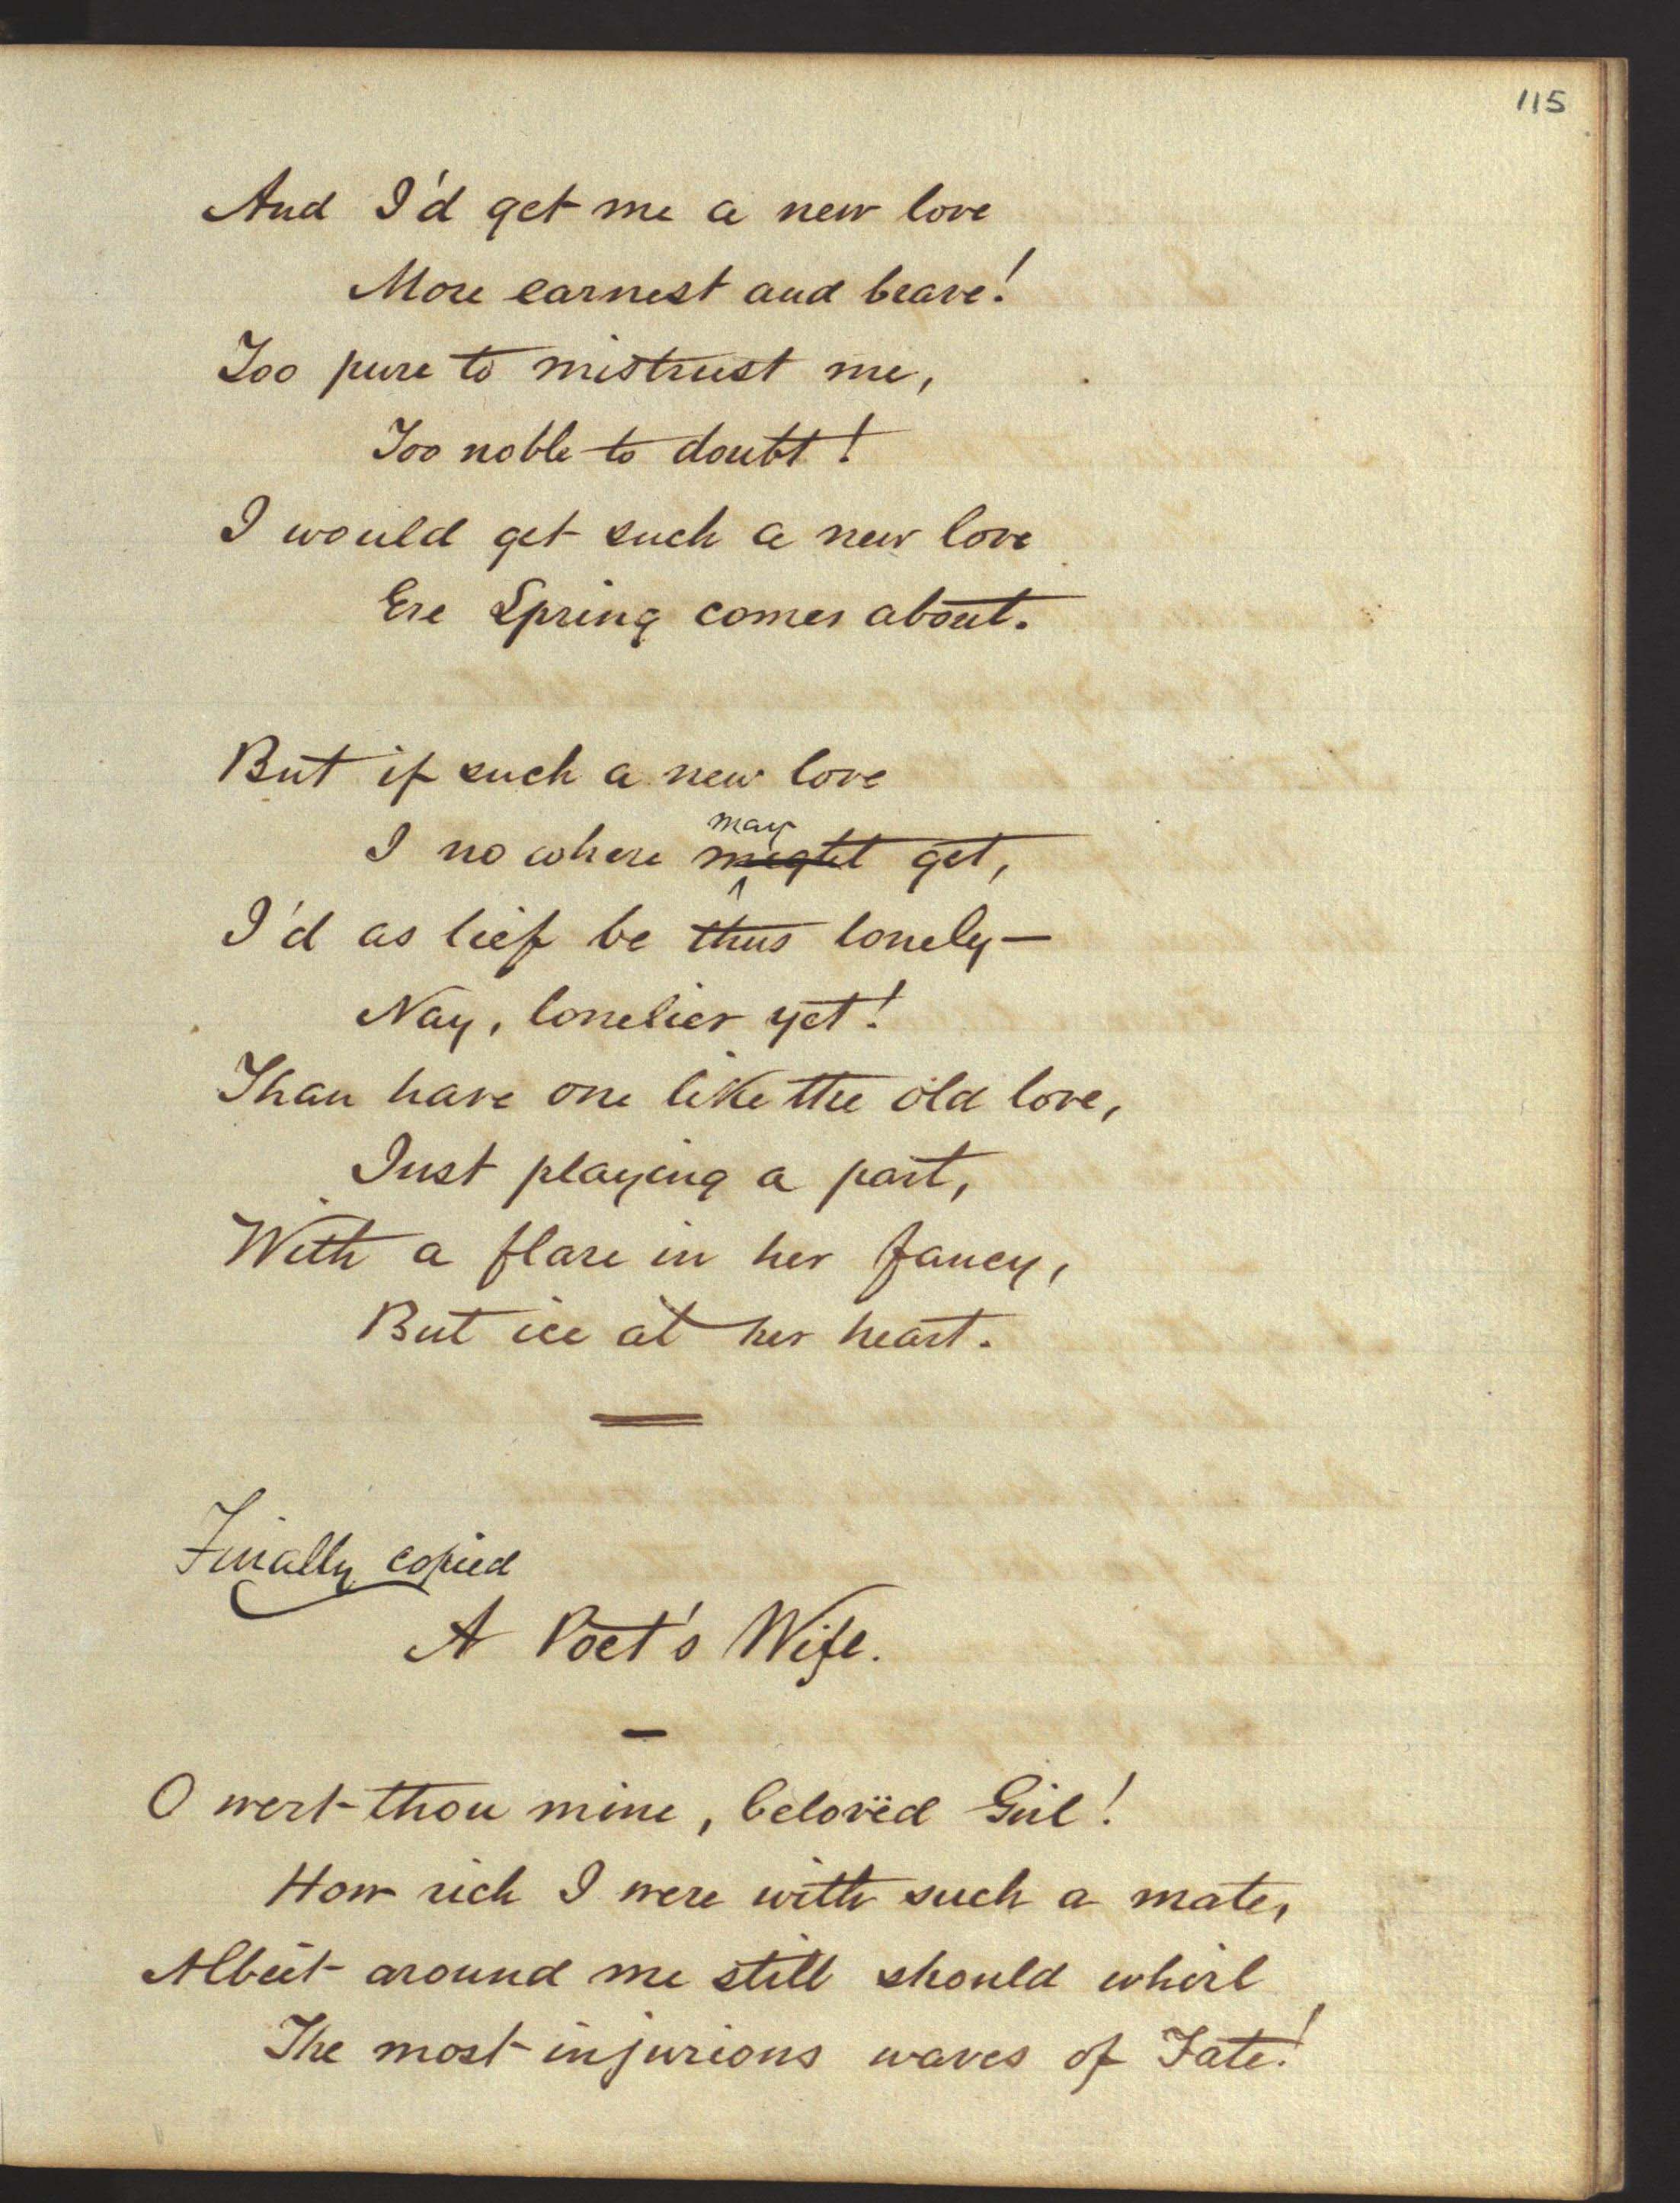 115
And I'd get me a new love
More earnest and brave!
Too pure to mistrust me,
Too noble to doubt!
I would get such a new love
Ere Spring comes about.
But if such a new love
may
I no where might get,
^
I'd as lief be thus lonely—
Nay, lonelier yet!
Than have one like the old love,
Just playing a part,
With a flare in her fancy,
But ice at her heart.
Finally copied
A Poet's Wife.
O wert thou mine, belovëd Girl!
How rich I were with such a mate,
Albeit around me still should whirl
The most injurious waves of Fate!